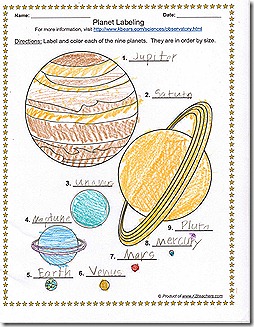 Name: Date:
Planet Labeling
For more information, visit http://www.kbears.com/sciences/observatory.html
Directions: Label and color each of the nine planets. They are in order by size.
1. Jupiter
2. Saturn
3. Uranus
4. Neptune
5. Earth
6. Venus
7. Mars
8. Mercury
9. Pluto
© Product of www.t2tteachers.com